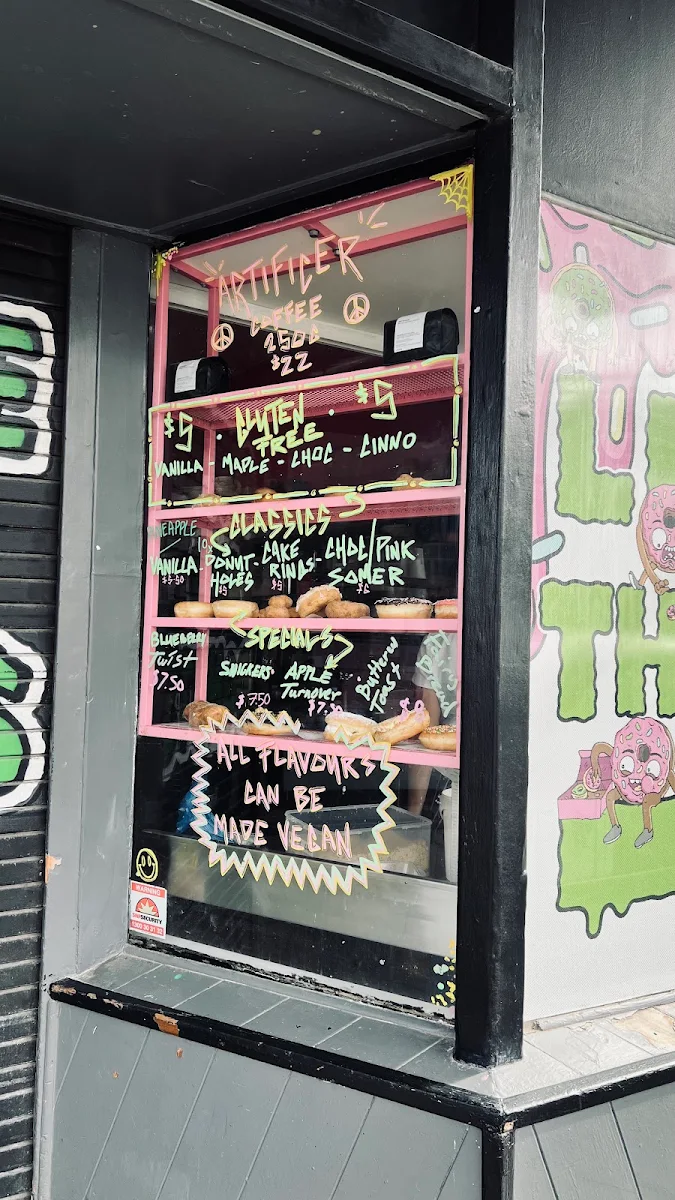 ARTIFICER
COFFEE
250G
$22
$5 · GLUTEN FREE · $5
VANILLA - MAPLE - CHOC - CINNO
CLASSICS
PINEAPPLE
VANILLA
$5.50
DONUT HOLES
CAKE RINGS
CHOC/PINK
SOMER
SPECIALS
BLUEBERRY
Twist
$7.50
SNICKERS
$7.50
APPLE
Turnover
Buttery
Toast
ALL FLAVOURS
CAN BE
MADE VEGAN
WARNING
SECURITY
L
TH